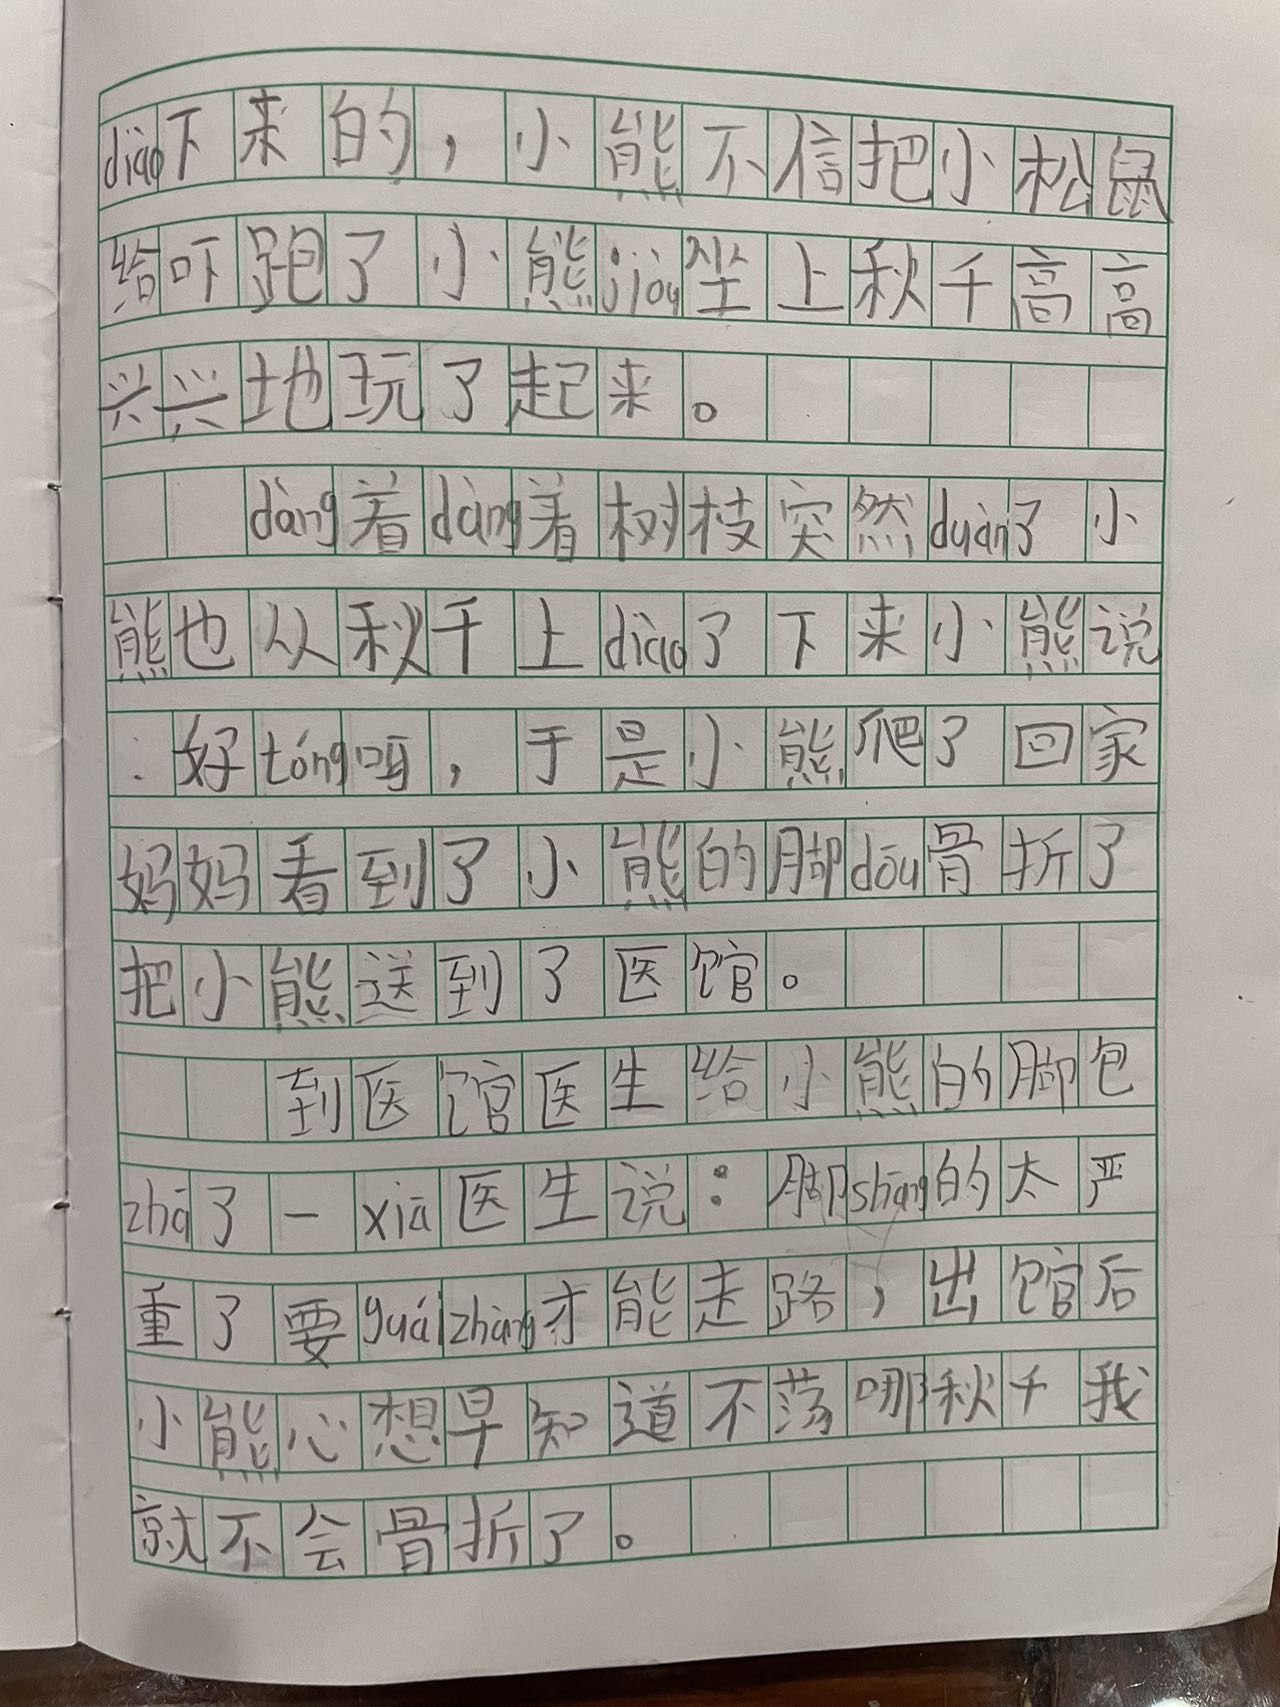 diào下来的，小熊不信把小松鼠
给吓跑了小熊jiòu坐上秋千高高
兴兴地玩了起来。
dàng着dàng着树枝突然duàn了小
熊也从秋千上diào了下来小熊说
：好tóng呀，于是小熊爬了回家
妈妈看到了小熊的脚dōu骨折了
把小熊送到了医馆。
到医馆医生给小熊的脚包
zhā了一xià医生说：脚shāng的太严
重了要guái zhàng才能走路，出馆后
小熊心想早知道不荡哪秋千我
就不会骨折了。